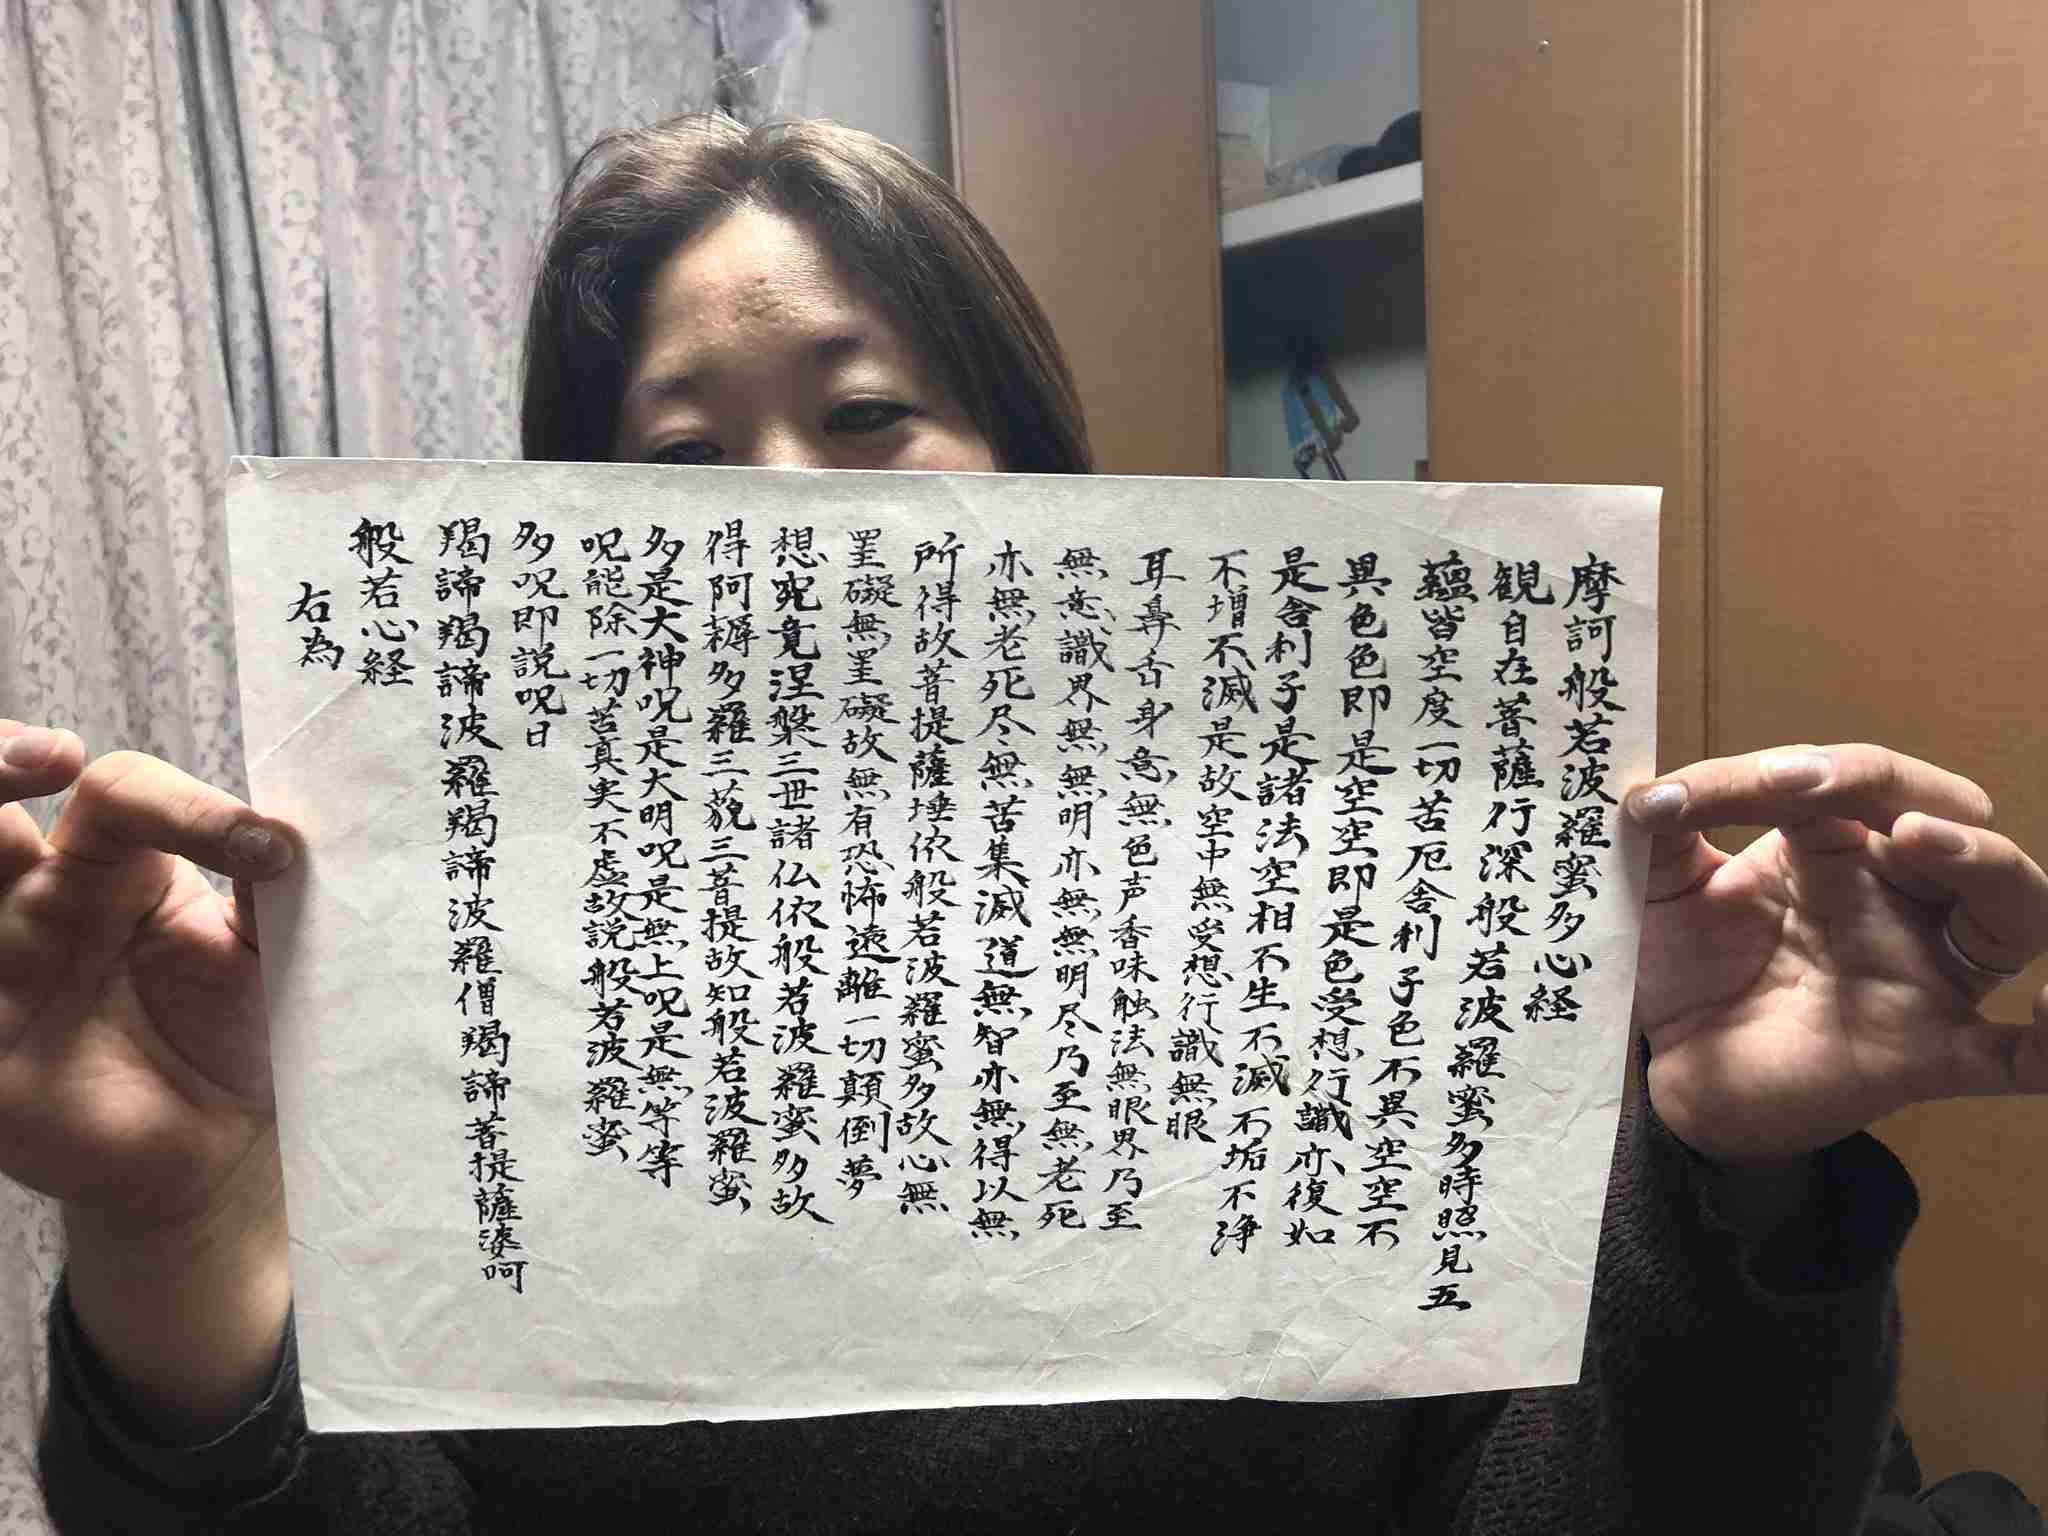 摩訶般若波羅蜜多心経
観自在菩薩行深般若波羅蜜多時照見五
蘊皆空度一切苦厄舎利子色不異空空不
異色色即是空空即是色受想行識亦復如
是舎利子是諸法空相不生不滅不垢不浄
不増不滅是故空中無受想行識無眼
耳鼻舌身意無色声香味触法無眼界乃至
無意識界無無明亦無無明尽乃至無老死
亦無老死尽無苦集滅道無智亦無得以無
所得故菩提薩埵依般若波羅蜜多故心無
罣礙無罣礙故無有恐怖遠離一切顛倒夢
想究竟涅槃三世諸仏依般若波羅蜜多故
得阿耨多羅三藐三菩提故知般若波羅蜜
多是大神呪是大明呪是無上呪是無等等
呪能除一切苦真実不虚故説般若波羅蜜
多呪即説呪曰
羯諦羯諦波羅羯諦波羅僧羯諦菩提薩婆呵
般若心経
右為